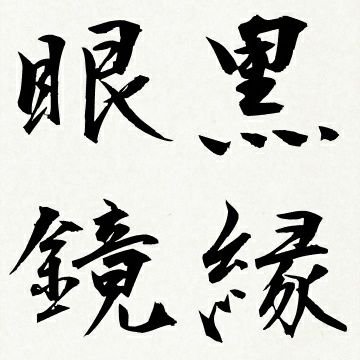 黒縁
眼鏡